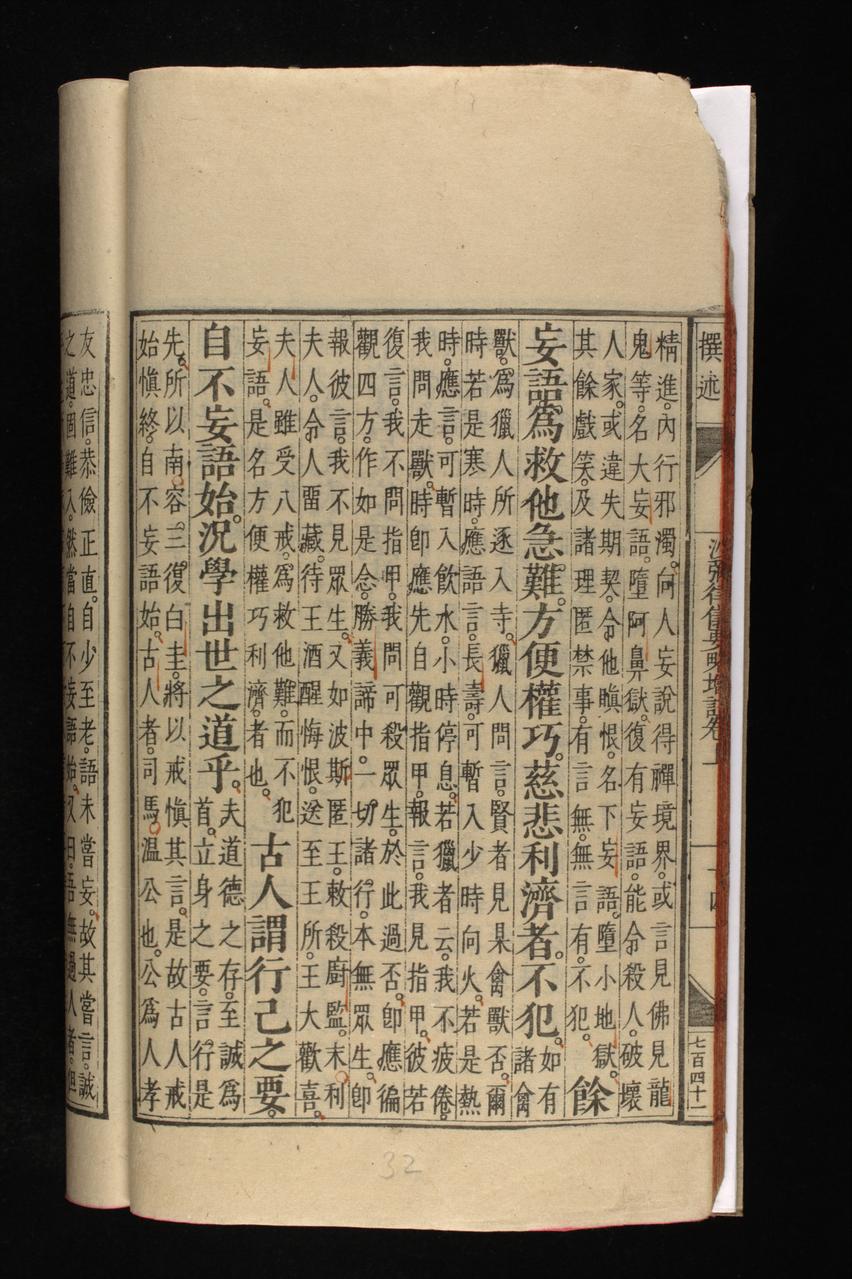 撰述
沙彌律儀要略增註卷上
十四
七百四十二
精進。內行邪濁。向人妄說得禪境界。或言見佛見龍
鬼等。名大妄語。墮阿鼻獄。復有妄語。能令殺人。破壞
人家。或違失期契。令他瞋恨。名下妄語。墮小地獄。
其餘戲笑。及諸理匿禁事。有言無。無言有。不犯。
餘
妄語。爲救他急難。方便權巧。慈悲利濟者。不犯。
如有
諸禽
獸。爲獵人所逐入寺。獵人問言。賢者見杲禽獸否。爾
時若是寒時。應語言。長壽。可暫入少時向火。若是熱
時。應言。可暫入飲水。小時停息。若獵者云。我不疲倦。
我問走獸。時卽應先自觀指甲。報言。我見指甲。彼若
復言。我不問指甲。我問可殺眾生。於此過否。卽應徧
觀四方。作如是念。勝義諦中。一切諸行。本無眾生。卽
報彼言。我不見眾生。又如波斯匿王。敕殺廚監。末利
夫人。令人畱藏。待王酒醒悔恨。送至王所。王大歡喜。
夫人雖受八戒。爲救他難。而不犯
妄語。是名方便權巧利濟。者也。
古人謂行己之要。
自不妄語始。況學出世之道乎。
夫道德之存。至誠爲
首。立身之要。言行是
先。所以南容。三復白圭。將以戒愼其言。是故古人戒
始愼終。自不妄語始。古人者。司馬溫公也。公爲人孝
友忠信。恭儉正直。自少至老。語未嘗妄。故其嘗言。誠
之道。固難入。然當自不妄語始。又曰。吾無過人者。但